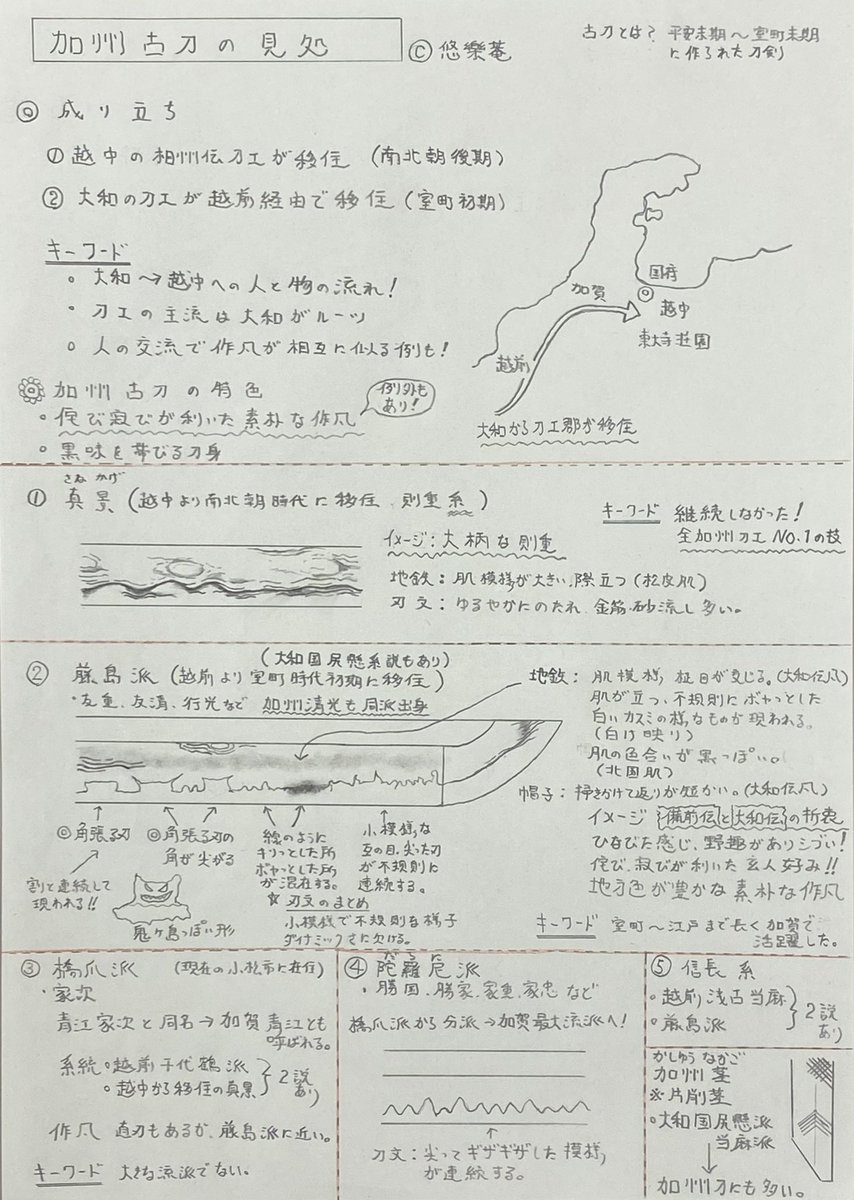 加州古刀の見処
©悠樂菴
古刀とは? 平安末期〜室町末期
に作られた刀剣
◎ 成り立ち
① 越中の相州伝刀工が移住 (南北朝後期)
② 大和の刀工が越前経由で移住 (室町初期)
キーワード
○ 大和→越中への人と物の流れ!
○ 刀工の主流は大和がルーツ
○ 人の交流で作風が相互に似る例も!
国府
加賀
越中
東大寺荘園
越前
大和から刀工郡が移住
加州古刀の特色
例外もあり!
・侘び寂びが利いた素朴な作風
・黒味を帯びる刀身
さね かげ
① 真景 (越中より南北朝時代に移住、則重系)
キーワード 継続しなかった!
全加州刀工NO.1の技
イメージ:大柄な則重
地鉄:肌模様が大きい、際立つ(松皮肌)
刃文:ゆるやかにのたれ、金筋・砂流し多い。
(大和国尻懸系説もあり)
② 藤島派 (越前より室町時代初期に移住)
・友重、友清、行光など 加州清光も同派出身
地鉄:肌模様、柾目が交じる。(大和伝風)
肌が立つ、不規則にボヤっとした
白いカスミの様なものが現われる。
(白け映り)
肌の色合いが黒っぽい。
(北国肌)
帽子:掃きかけて返りが短かい。(大和伝風)
イメージ 備前伝と大和伝の折衷
ひなびた感じ、野趣がありシブい!
侘び、寂びが利いた玄人好み!!
地方色が豊かな素朴な作風
キーワード 室町〜江戸まで長く加賀で
活躍した。
◎角張る刃
◎角張る刃の
角が尖がる
線のように
キリっとした所
ボヤっとした所
が混在する。
小模様な
互の目、尖った刃
が不規則に
連続する。
割と連続して
現われる!!
鬼ヶ島っぽい形
☆ 刃文のまとめ
小模様で不規則な様子
ダイナミックさに欠ける。
③ 橋爪派 (現在の小松市に在住)
・家次
青江家次と同名→加賀青江とも
呼ばれる。
系統 ・越前千代鶴派
・越中から移住の真景
2説あり
作風 直刃もあるが、藤島派に近い。
キーワード 大きな流派でない。
だらに
④ 陀羅尼派
・勝国、勝家、家重、家忠など
橋爪派から分派→加賀最大流派へ!
刃文:尖ってギザギザした模様
が連続する。
⑤ 信長系
・越前浅古当麻
・藤島派
2説あり
かしゅう なかご
加州茎
※片削茎
○大和国尻懸派
当麻派
加州刀にも多い。